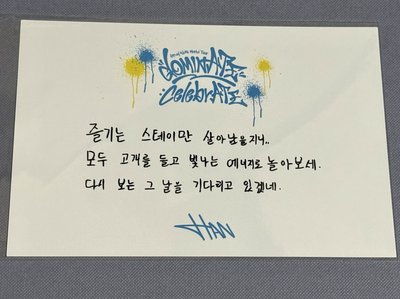 dominATE
CelebrATE
즐기는 스테이만 살아남을지니..
모두 고개를 들고 빛나는 에너지로 놀아보세.
다시 보는 그 날을 기다리고 있겠네.
HAN